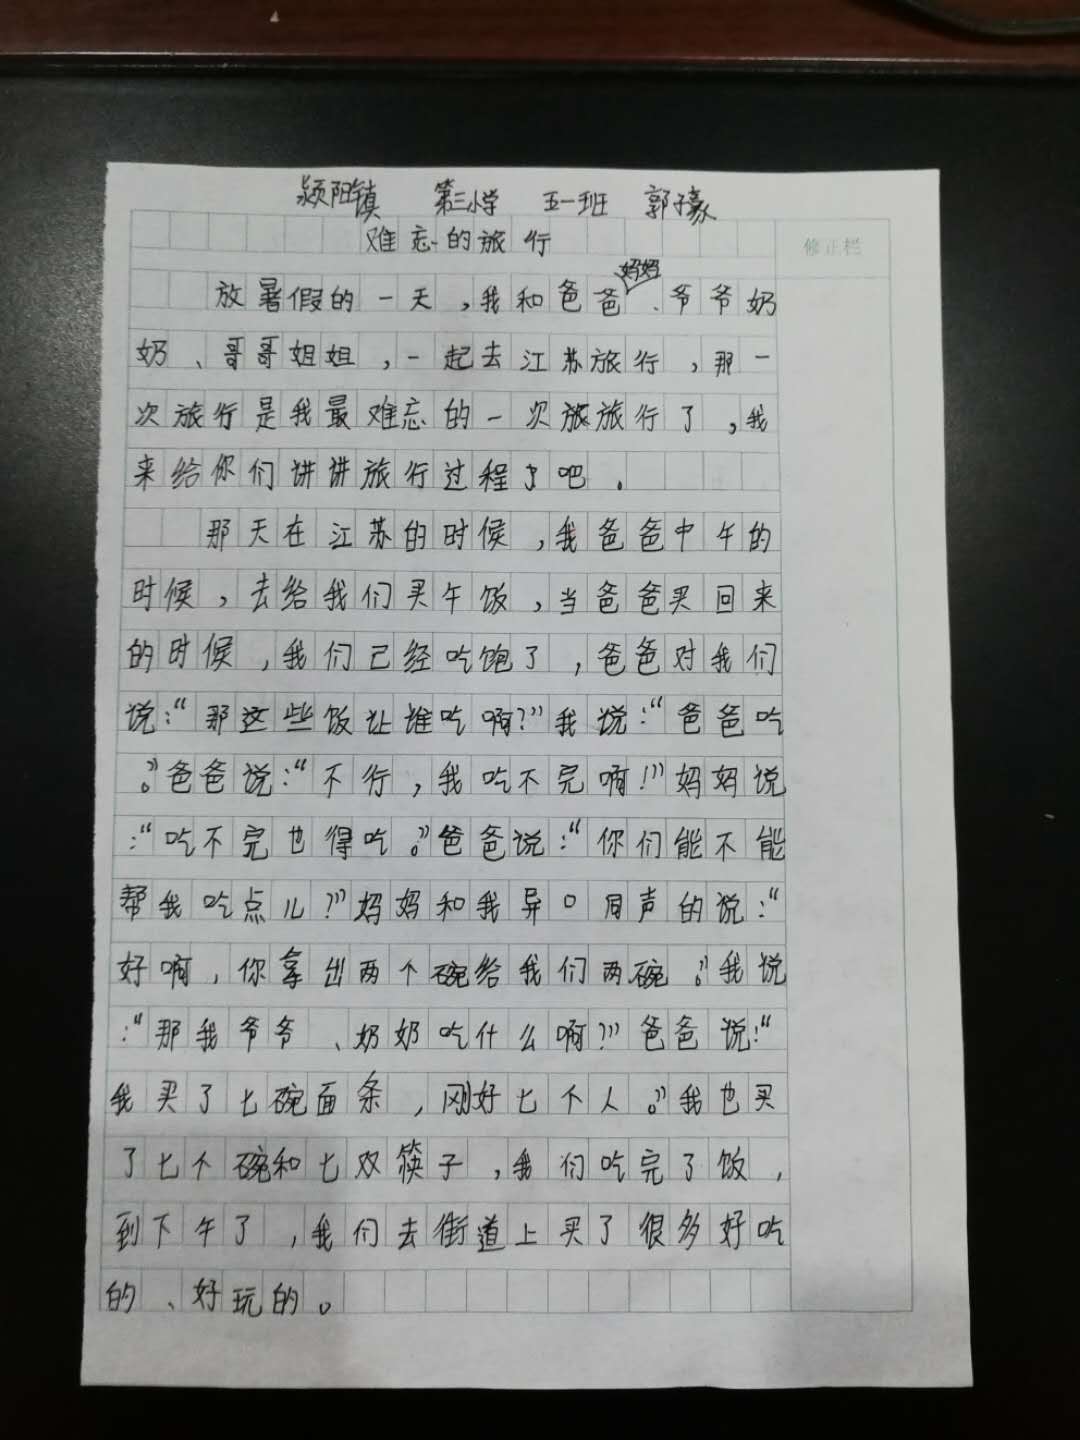 颍阳镇 第三小学 五一班 郭子豪
难忘的旅行
修正栏
妈妈
放暑假的一天,我和爸爸、爷爷奶
奶、哥哥姐姐,一起去江苏旅行,那一
次旅行是我最难忘的一次旅旅行了,我
来给你们讲讲旅行过程了吧。
那天在江苏的时候,我爸爸中午的
时候,去给我们买午饭,当爸爸买回来
的时候,我们已经吃饱了,爸爸对我们
说:“那这些饭让谁吃啊?”我说:“爸爸吃
。”爸爸说:“不行,我吃不完啊!”妈妈说
:“吃不完也得吃。”爸爸说:“你们能不能
帮我吃点儿?”妈妈和我异口同声的说:“
好啊,你拿出两个碗给我们两碗。”我说
:“那我爷爷、奶奶吃什么啊?”爸爸说:“
我买了七碗面条,刚好七个人。”我也买
了七个碗和七双筷子,我们吃完了饭,
到下午了,我们去街道上买了很多好吃
的、好玩的。